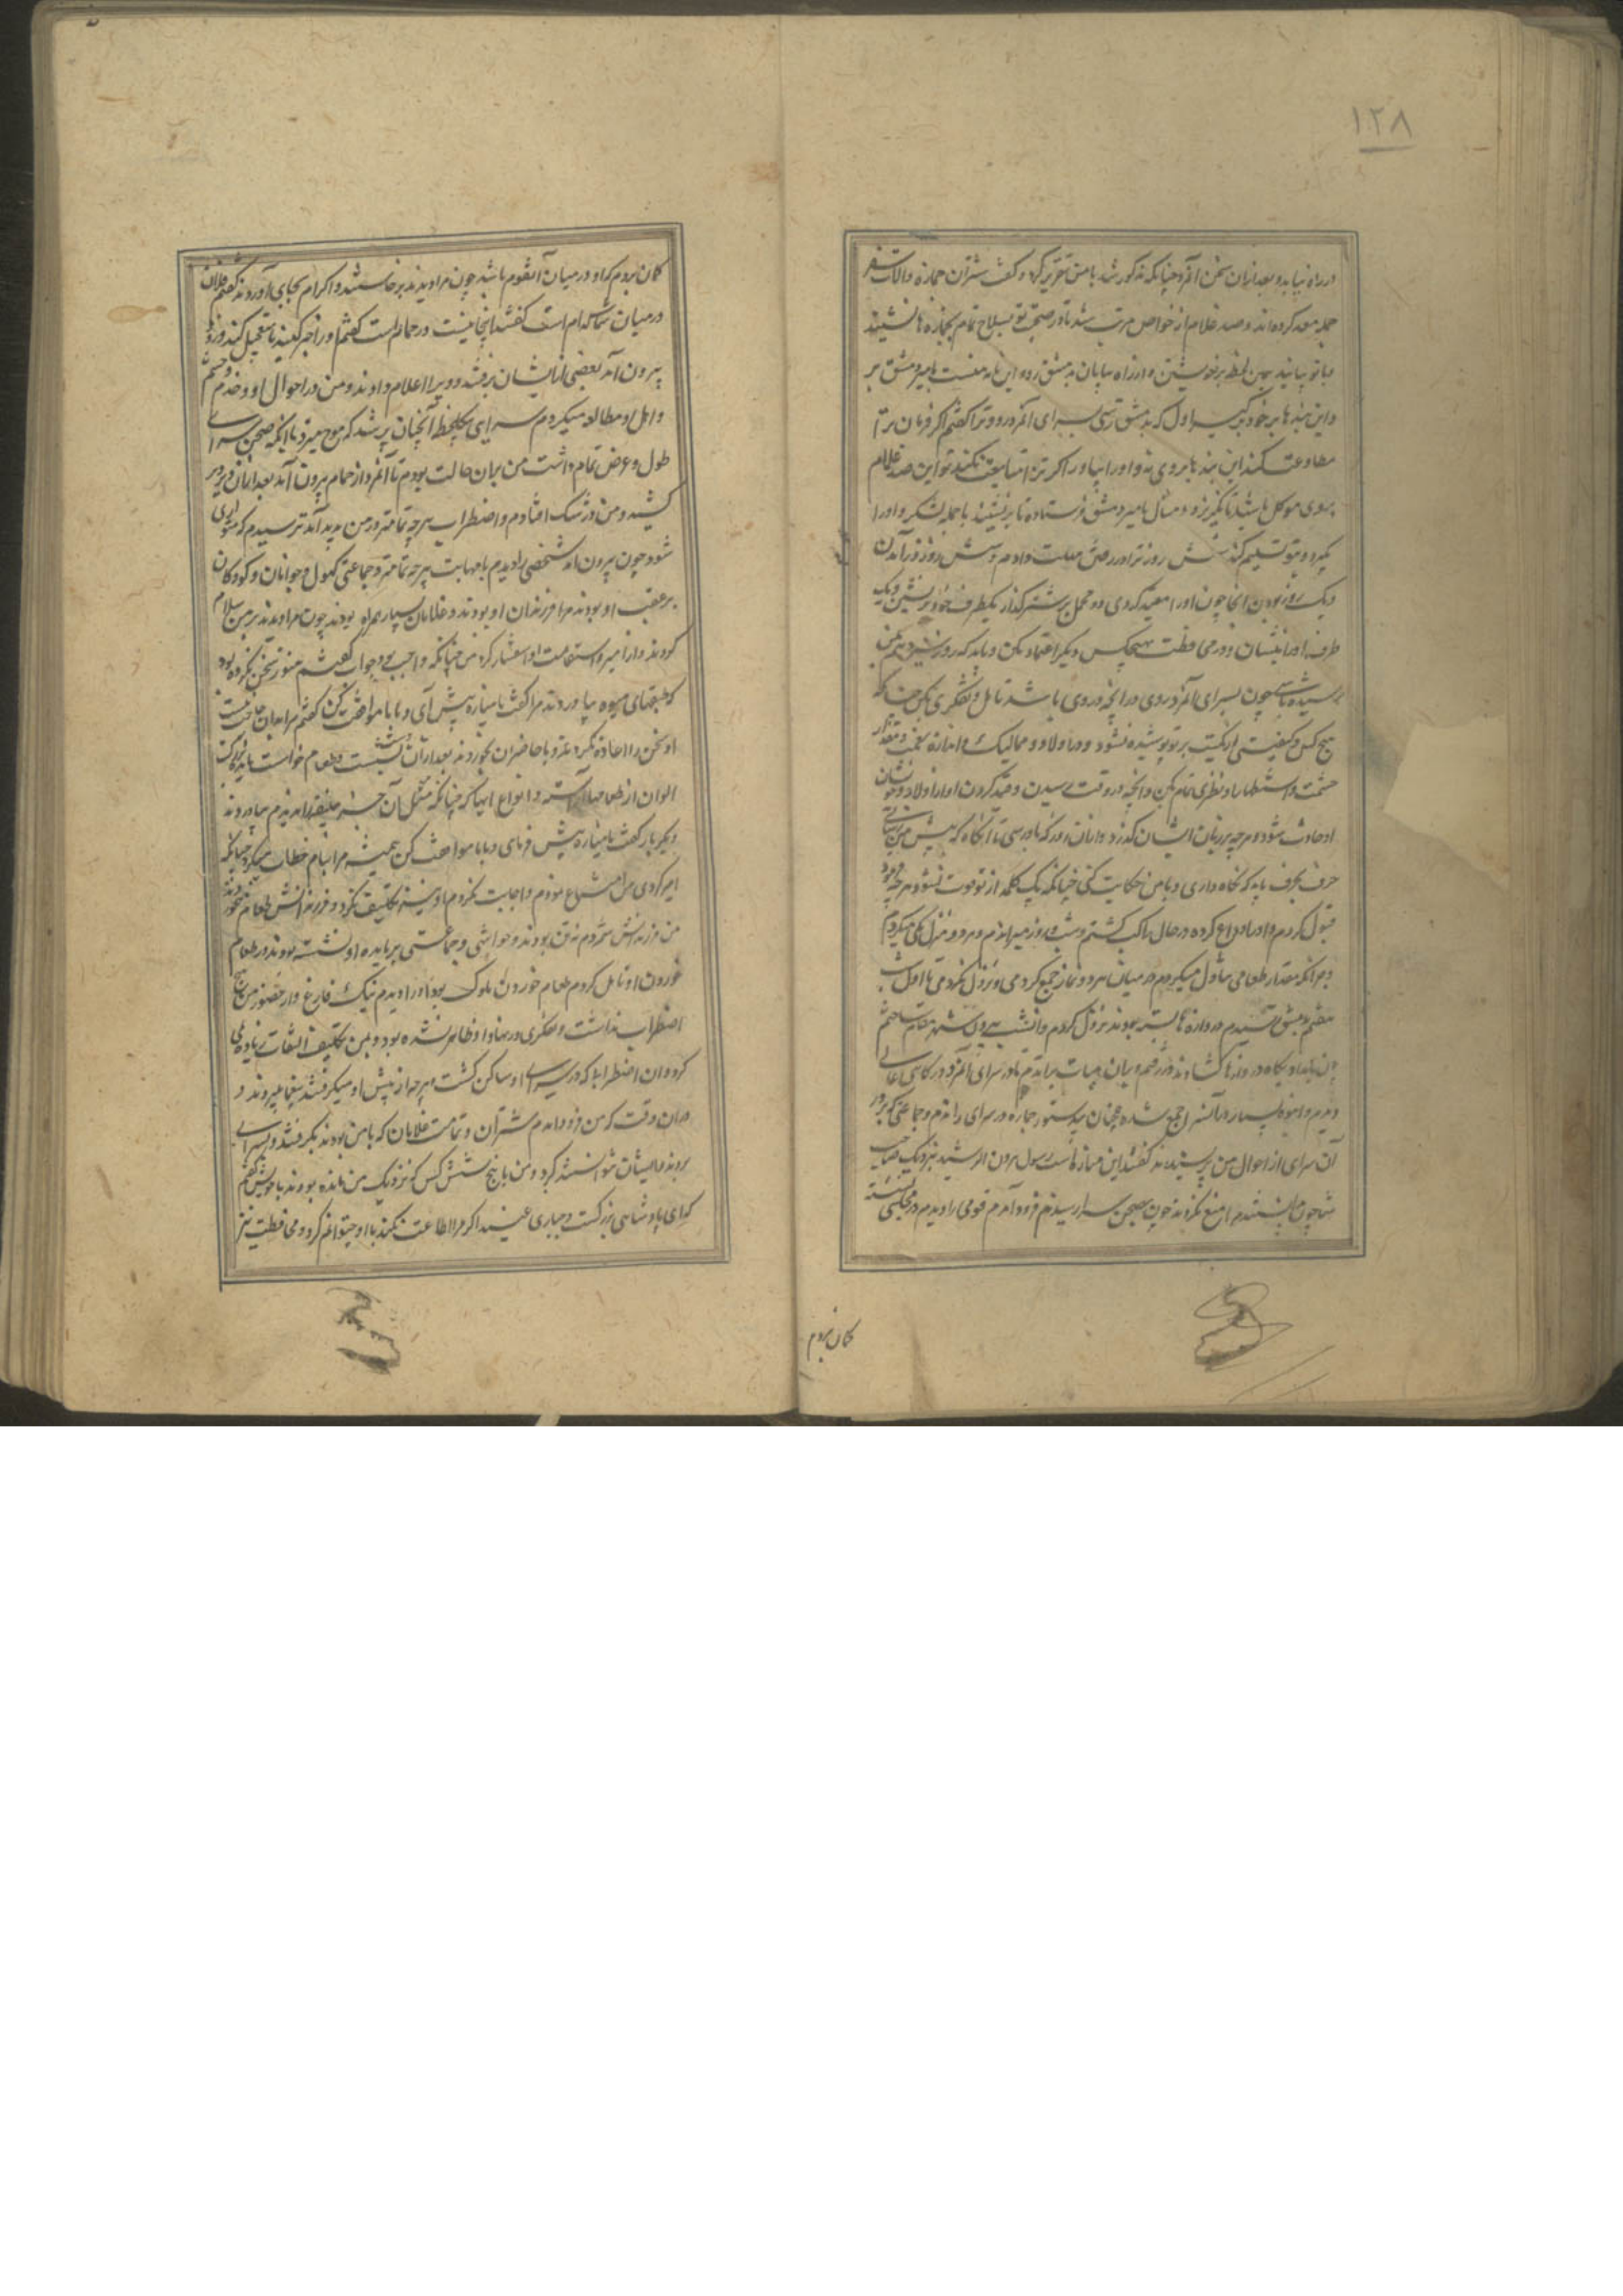 ١٢٨
در راه نیاید و بعد ازان سخن آنمرد چنانکه مذکور شد با من تقریر کرد و گفت شتران جمازه و آلات سفر
جمله معد کرده‌اند و صد غلام از خواص مرتب شد تا در صحبت تو بسلاح تمام بجمازه‌ها نشینند
و با تو بیایند همین لحظه برنشین و از راه بیابان بدمشق رو و این نامه منست بامیر دمشق بر
و این بندها بر خود برگیر اول که بدمشق رسی بسرای آنمرد رو و ترا گفتم اگر فرمان ترا
مطاوعت کند این بندها بر وی نه و او را بیاور اگر ترا متابعت نکند تو و این صد غلام
بر وی موکل باشید تا نگریزد و مثال بامیر دمشق فرستاده تا برنشیند با جمله لشکر و او را
بگیرد و بتو تسلیم کند شش روز ترا در رفتن مهلت دادم و شش روز در آمدن
و یک روز بودن آنجا چون او را مقید کردی در محمل بر شتر گذار یکطرف خود برنشین و یک
طرف او را بنشان و در محافظت بهیچکس دیگر اعتماد مکن و باید که روز سیزدهم پیش من
رسیده باشی چون بسرای آنمرد روی در آنچه در وی باشد تامل و تفکری بکن چنانکه
هیچ کس و کیفیتی از کمیت بر تو پوشیده نشود و در اولاد و ممالیک و اندازه نعمت و مقدار
حشمت و استظهار او نظری تمام بکن و آنچه در وقت رسیدن و قید کردن او از اولاد و خویشان
او حادث شود و هر چه بر زبان ایشان گذرد و از آن روز که باو رسی تا آنگاه که پیش من رسانی
حرف بحرف باید که نگاه داری و با من حکایت کنی چنانکه یک کلمه از تو فوت نشود هر چه فرمود
قبول کردم و او را وداع کرده در حال راکب گشتم و شب و روز میراندم و هر دو منزل یکی میکردم
و جز آنکه مقدار طعامی تناول میکردم در میان هر دو نماز جمع کردمی و نزول نکردمی تا اول شب
هفتم بدمشق رسیدم دروازه‌ها بسته بودند نزول کردم و آنشب بیرون شهر مقام ساختم
چون بامداد پگاه دروازها گشادند در رفتم و بهمان هیات براندم تا در سرای آنمرد درگاهی عالی
دیدم و انبوه بسیار در آن سرا جمع شده همچنان بدستور جمازه در سرای راندم و جماعتی که بر در
آن سرای از احوال من پرسیدند گفتند این مبارک است رسول هرون الرشید نزدیک صاحب
شما چون بدانستند مرا منع نکردند چون بصحن سرا رسیدم فرود آمدم قومی را دیدم در مجلسی نشسته
گمان بردم
گمان بردم که او در میان آنقوم باشد چون مرا دیدند برخاستند و اکرام بجای آوردند گفتم فلان
در میان شما کدام است گفتند اینجا نیست در حمام است گفتم او را خبر کنید تا تعجیل کند و زود
بیرون آید بعضی از ایشان برفتند و ویرا اعلام دادند و من در احوال او و خدم و حشم
و اهل او مطالعه میکردم سرای یکلحظه آنچنان پر شد که موج میزد با آنکه صحن سرا
طول و عرض تمام داشت من بران حالت بودم تا آنمرد از حمام بیرون آمد بعد ازان دیر
کشید و من در شک افتادم و اضطراب هر چه تمامتر در من پدید آمد ترسیدم که متواری
شود چون بیرون آمد شخصی را دیدم با مهابت هر چه تمامتر و جماعتی کهول و جوانان و کودکان
بر عقب او بودند مرا فرزندان او بودند و غلامان بسیار همراه بودند چون مرا دیدند بر من سلام
کردند و از امیر و استقامت او استفسار کرد من چنانکه واجب بود جواب گفتم هنوز سخن نکرده بود
که طبقهای میوه بیاوردند مرا گفت یا مناره پیش آی و با ما موافقت کن گفتم مرا بدان حاجت نیست
او سخن را اعاده نکرد و او با حاضران بخوردند بعد ازان دست بشست و طعام خواست مایده بزرگ
الوان از طعامها آراسته و انواع اباها که چنانکه مثل آن جز خلیفه را ندیدم بیاوردند
دیگر بار گفت یا مناره پیش فرمای و با ما موافقت کن همیشه مرا بنام خطاب میکرد چنانکه
امیر کردی من امتناع نمودم و اجابت نکردم او نیز تکلیف نکرد و فرزندانش طعام بخوردند
من فرزندانش شمردم نه تن بودند و حواشی و جماعتی بر مایده او نشسته بودند در طعام
خوردن او تامل کردم طعام خوردن ملوک بود او را دیدم نیک فارغ و از حضور من هیچ
اضطراب نداشت و تفکری در نهاد او ظاهر نشده بود و بمن تکلیف التفات زیاده نمی
کرد و آن اضطراب که در سرای او ساکن گشت هر چه از پیش او میگرفتند بیغما میبردند و
در آن وقت که من فرود آمدم شتران و تمامت غلامان که با من بودند بگرفتند و بسرای
بردند و ایشان نتوانستند کرد و من با پنج شش کس که نزدیک من مانده بودند با خویش گفتم
که ای پادشاهی بزرگست و جباری عنید اگر مرا اطاعت نکند با او چتوانم کرد و محافظت نیز